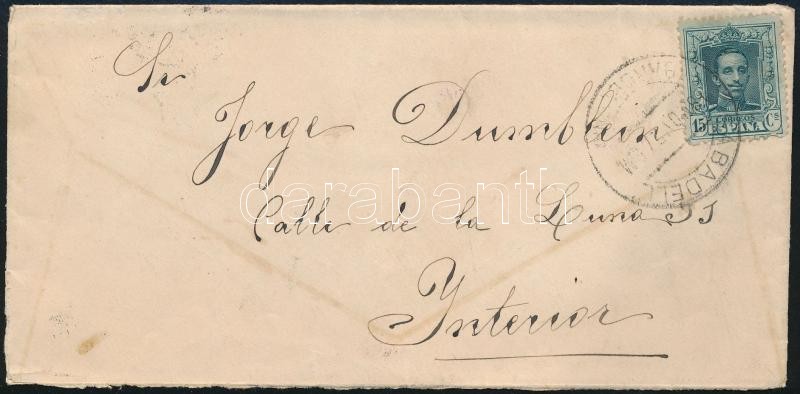 Sr
Jorge Dumblein
Calle de la Luna 35
Interior
15 CORREOS Cs
ESPAÑA
SABADELL
darabanth